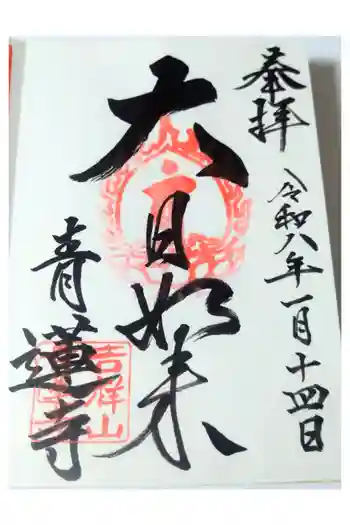 奉拝
令和八年一月十四日
大日如来
青蓮寺
吉祥山